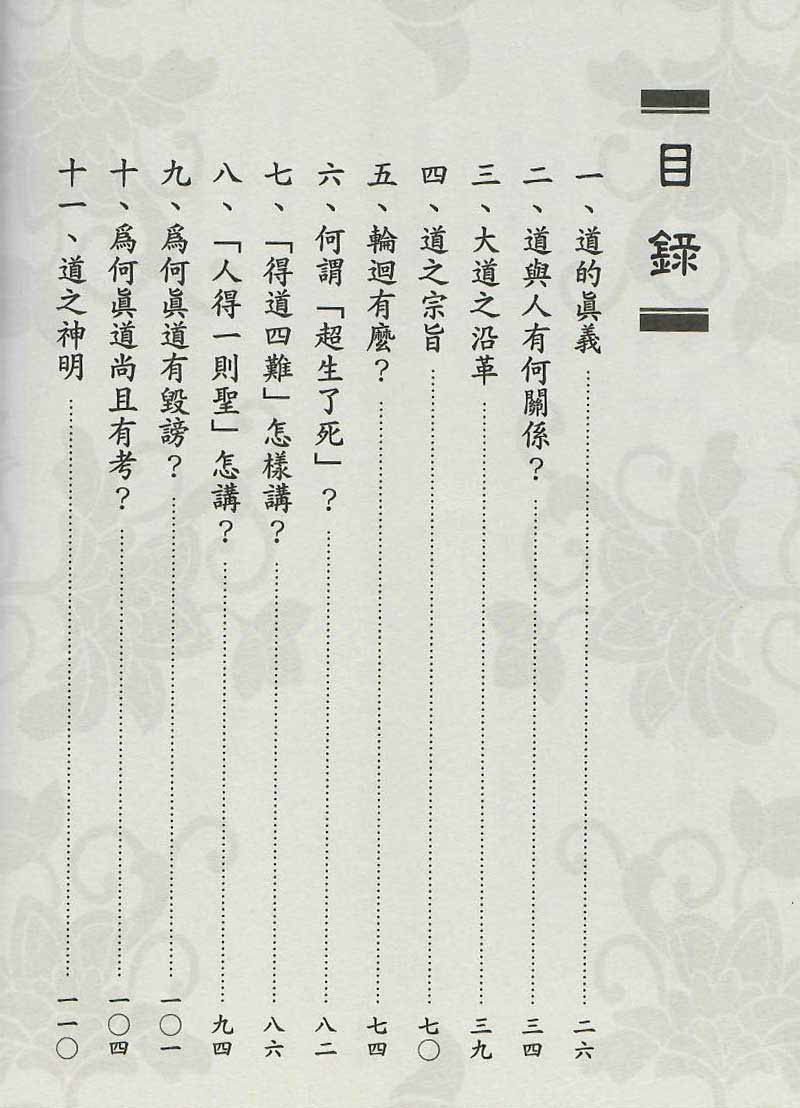 目錄
一、道的眞義⋯⋯二六
二、道與人有何關係？⋯⋯三四
三、大道之沿革⋯⋯三九
四、道之宗旨⋯⋯七〇
五、輪迴有麼？⋯⋯七四
六、何謂「超生了死」？⋯⋯八二
七、「得道四難」怎樣講？⋯⋯八六
八、「人得一則聖」怎講？⋯⋯九四
九、爲何眞道有毀謗？⋯⋯一〇一
十、爲何眞道尚且有考？⋯⋯一〇四
十一、道之神明⋯⋯一一〇